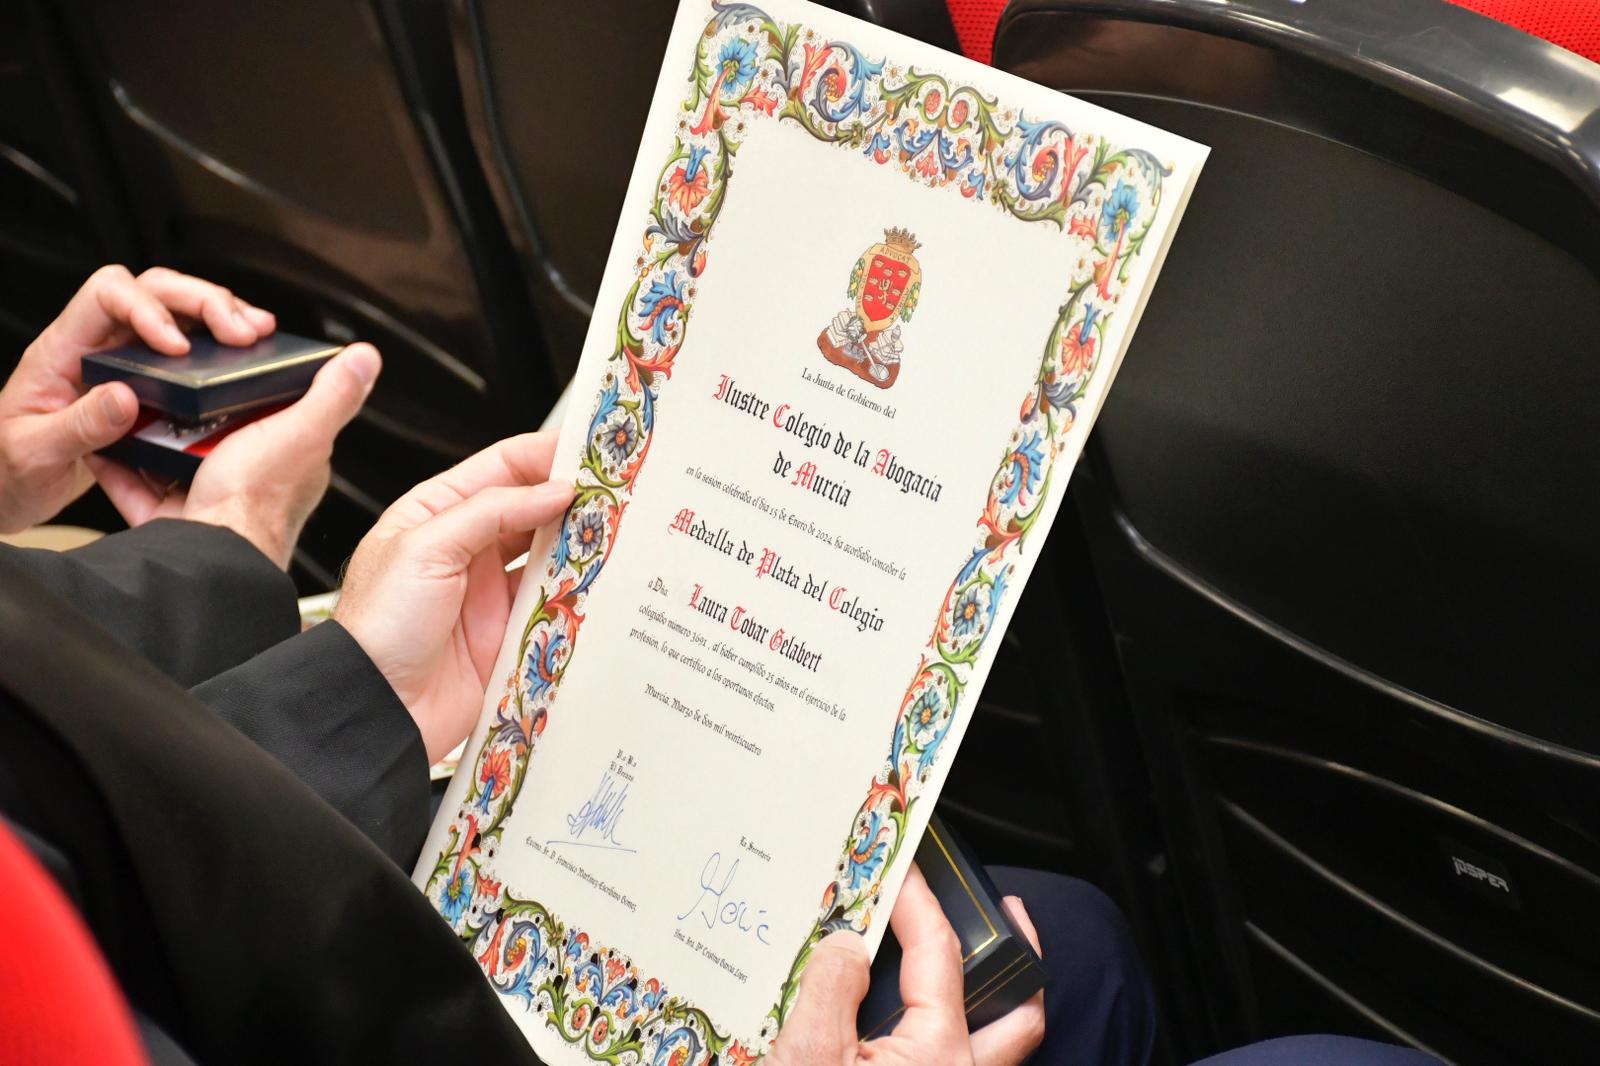 ADVOCAT
La Junta de Gobierno del
Ilustre Colegio de la Abogacía
de Murcia
en la sesión celebrada el día 15 de Enero de 2024, ha acordado conceder la
Medalla de Plata del Colegio
a Dña. Laura Tovar Gelabert
colegiado número 3691, al haber cumplido 25 años en el ejercicio de la
profesión, lo que certifico a los oportunos efectos.
Murcia, Marzo de dos mil veinticuatro
El Decano
Excmo. Sr. D. Francisco Martínez-Escribano Gómez
La Secretaria
Ilma. Sra. Dª Cristina García López
JOSPER